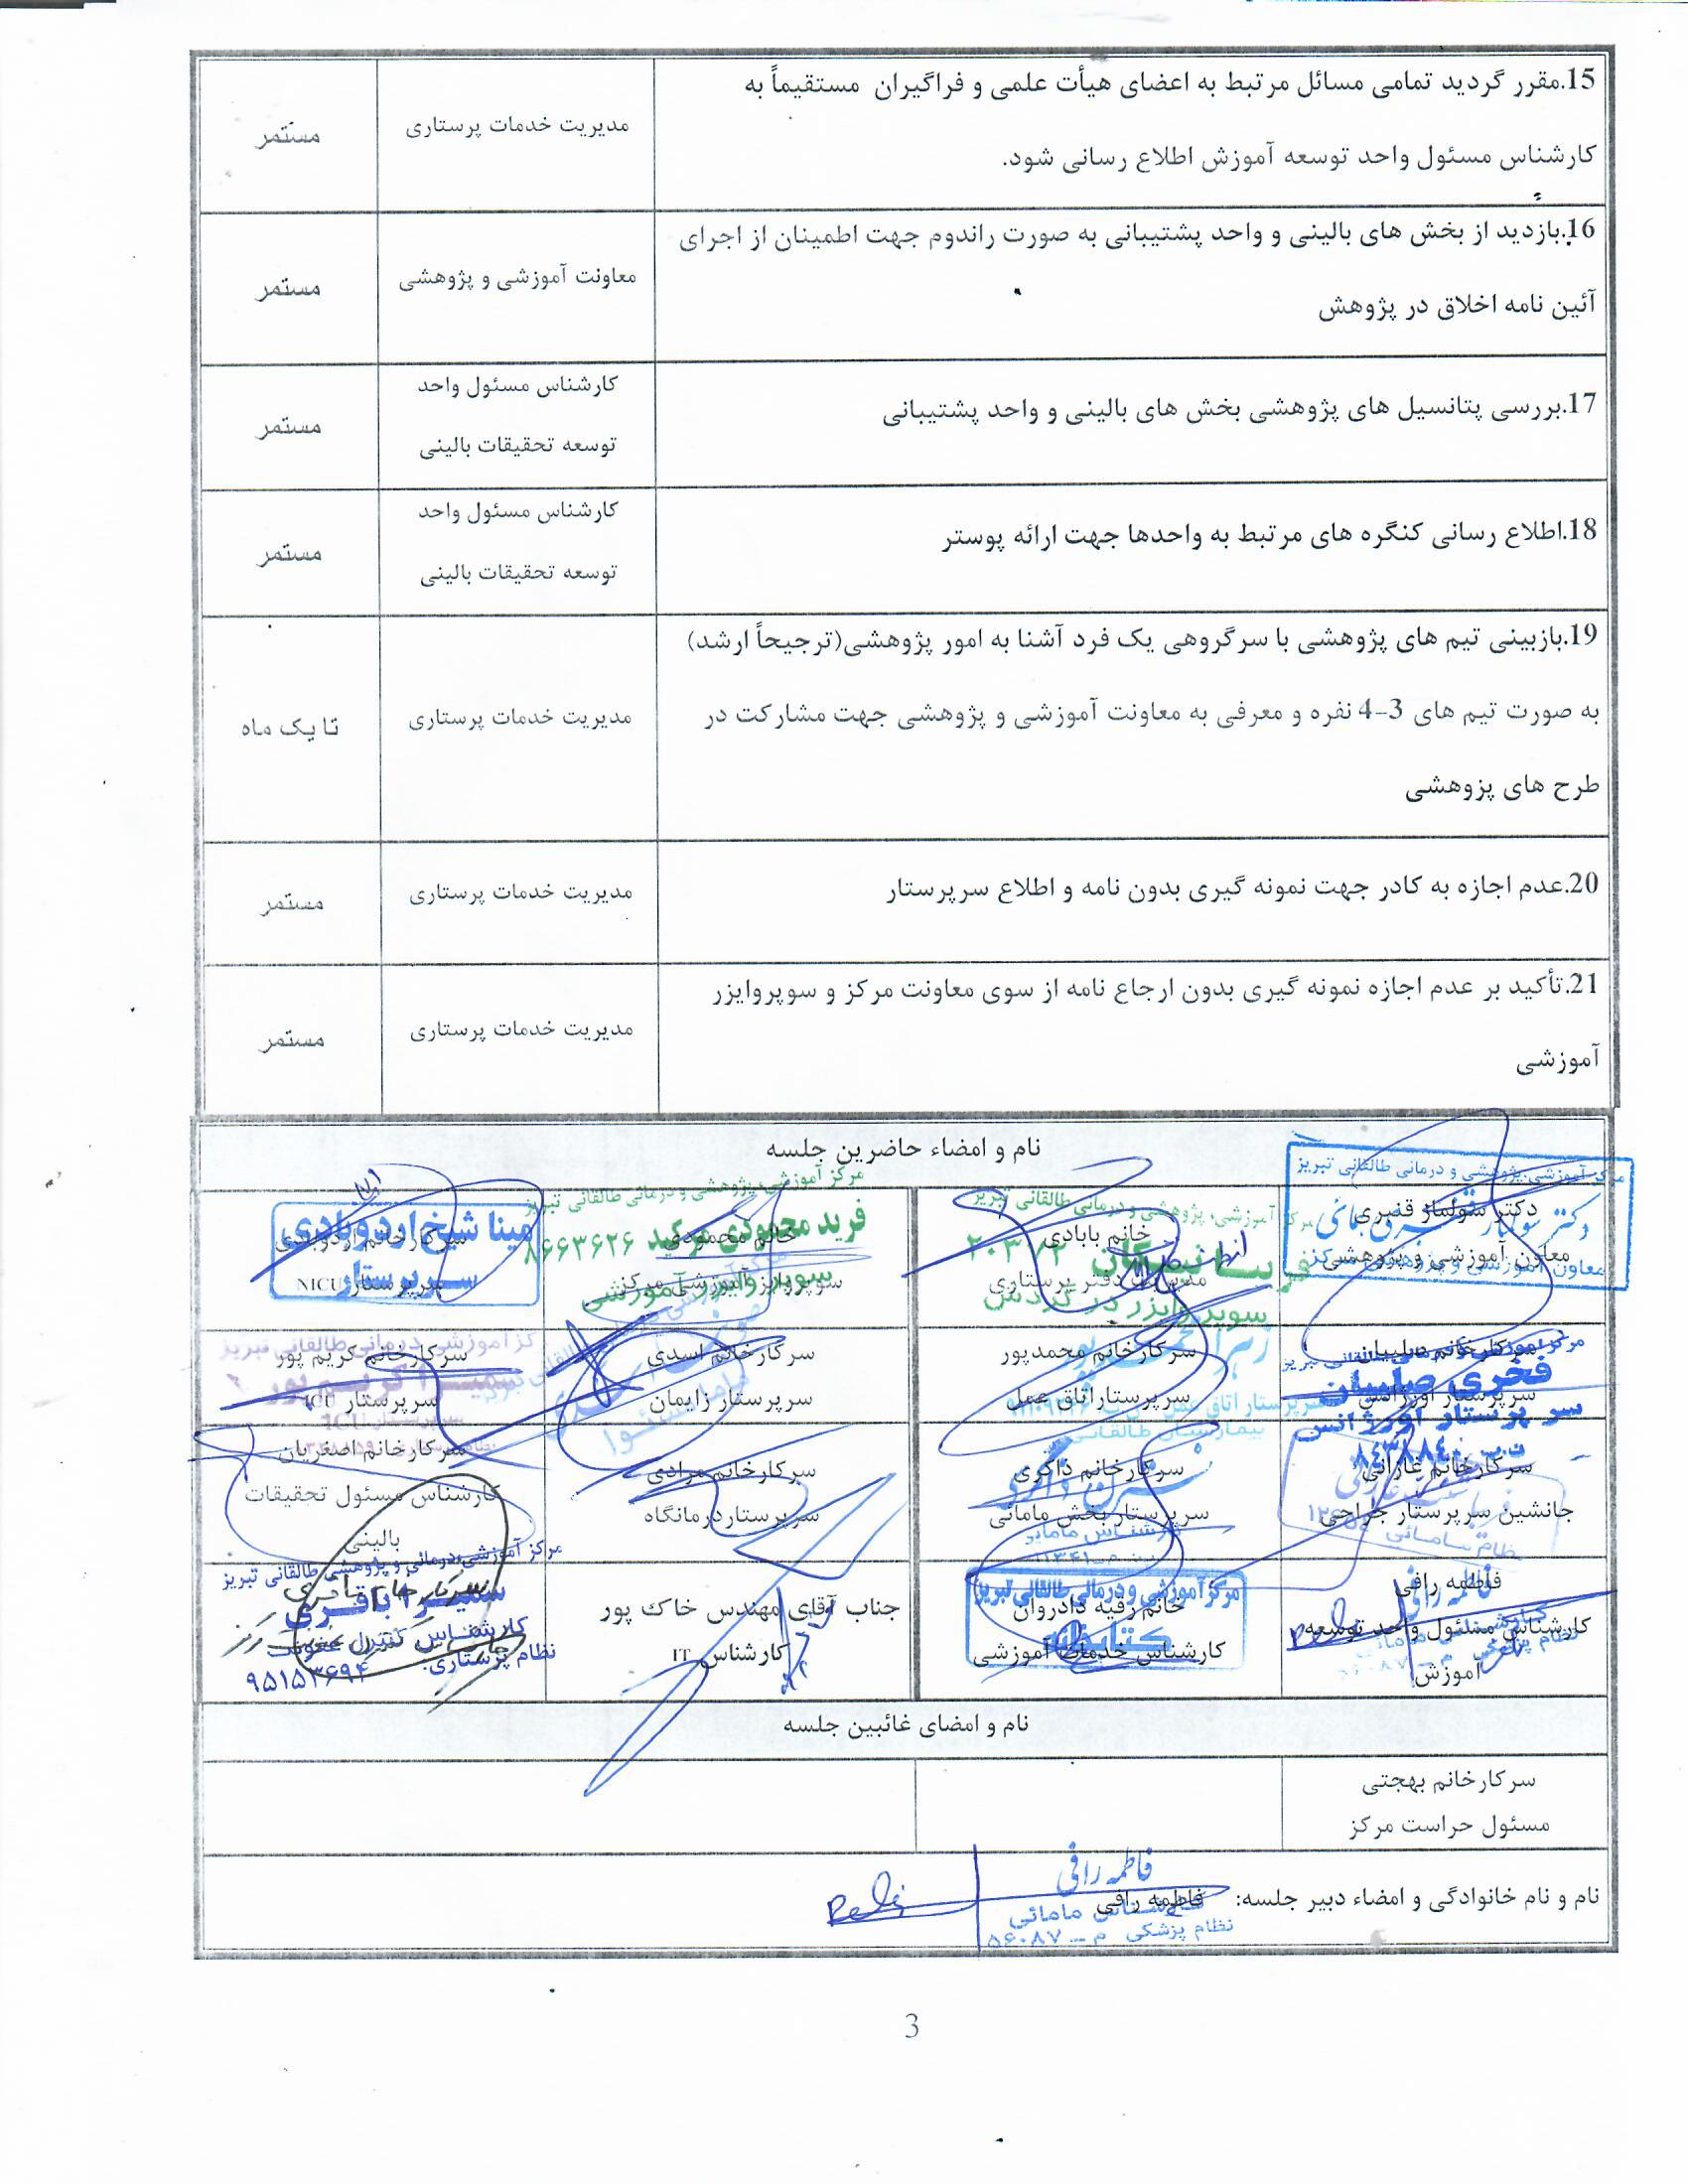 15.مقرر گردید تمامی مسائل مرتبط به اعضای هیأت علمی و فراگیران مستقیماً به
کارشناس مسئول واحد توسعه آموزش اطلاع رسانی شود.
مدیریت خدمات پرستاری
مستمر
16.بازدید از بخش های بالینی و واحد پشتیبانی به صورت راندوم جهت اطمینان از اجرای
آئین نامه اخلاق در پژوهش
معاونت آموزشی و پژوهشی
مستمر
17.بررسی پتانسیل های پژوهشی بخش های بالینی و واحد پشتیبانی
کارشناس مسئول واحد
توسعه تحقیقات بالینی
مستمر
18.اطلاع رسانی کنگره های مرتبط به واحدها جهت ارائه پوستر
کارشناس مسئول واحد
توسعه تحقیقات بالینی
مستمر
19.بازبینی تیم های پژوهشی با سرگروهی یک فرد آشنا به امور پژوهشی(ترجیحاً ارشد)
به صورت تیم های 3-4 نفره و معرفی به معاونت آموزشی و پژوهشی جهت مشارکت در
طرح های پزوهشی
مدیریت خدمات پرستاری
تا یک ماه
20.عدم اجازه به کادر جهت نمونه گیری بدون نامه و اطلاع سرپرستار
مدیریت خدمات پرستاری
مستمر
21.تأکید بر عدم اجازه نمونه گیری بدون ارجاع نامه از سوی معاونت مرکز و سوپروایزر
آموزشی
مدیریت خدمات پرستاری
مستمر
نام و امضاء حاضرین جلسه
مرکز آموزشی،پژوهشی و درمانی طالقانی تبریز
دکتر سولماز قنبری
معاون آموزشی و پژوهشی مرکز
مرکز آموزشی، پژوهشی و درمانی طالقانی تبریز
خانم بابادی
مدیریت دفتر پرستاری
سوپروایزر در گردش
مرکز آموزشی، پژوهشی و درمانی طالقانی تبریز
فرید محمودی
خانم محمودی
سوپروایزر آموزشی مرکز
سوپروایزر آموزشی
مینا شیخ اردوبادی
سرکارخانم اردوبادی
سرپرستار NICU
سرپرستار
سرکارخانم صلبیان
فخری صلبیان
سرپرستار اورژانس
سرپرستار اورژانس
سرکارخانم محمدپور
سرپرستار اتاق عمل
بیمارستان طالقانی
سرکارخانم اسدی
سرپرستار زایمان
سرکارخانم کریم پور
سرپرستار ICU
جانشین سرپرستار جراحی
سرکارخانم ذاکری
سرپرستار بخش مامائی
سرکارخانم مرادی
سرپرستار درمانگاه
سرکارخانم اصغریان
کارشناس مسئول تحقیقات
بالینی
فاطمه رافی
کارشناس مسئول واحد توسعه
آموزش
مرکز آموزشی و درمانی طالقانی تبریز
خانم رقیه دادروان
کتابخانه
کارشناس خدمات آموزشی
جناب آقای مهندس خاک پور
کارشناس IT
مرکز آموزشی،درمانی و پژوهشی طالقانی تبریز
سمیرا باقری
کارشناس کنترل عفونت
نظام پرستاری:
۹۵۱۵۳۶۹۴
نام و امضای غائبین جلسه
سرکارخانم بهجتی
مسئول حراست مرکز
نام و نام خانوادگی و امضاء دبیر جلسه: فاطمه رافی
فاطمه رافی
کارشناس مامائی
نظام پزشکی م – ۵۶۰۸۷
3